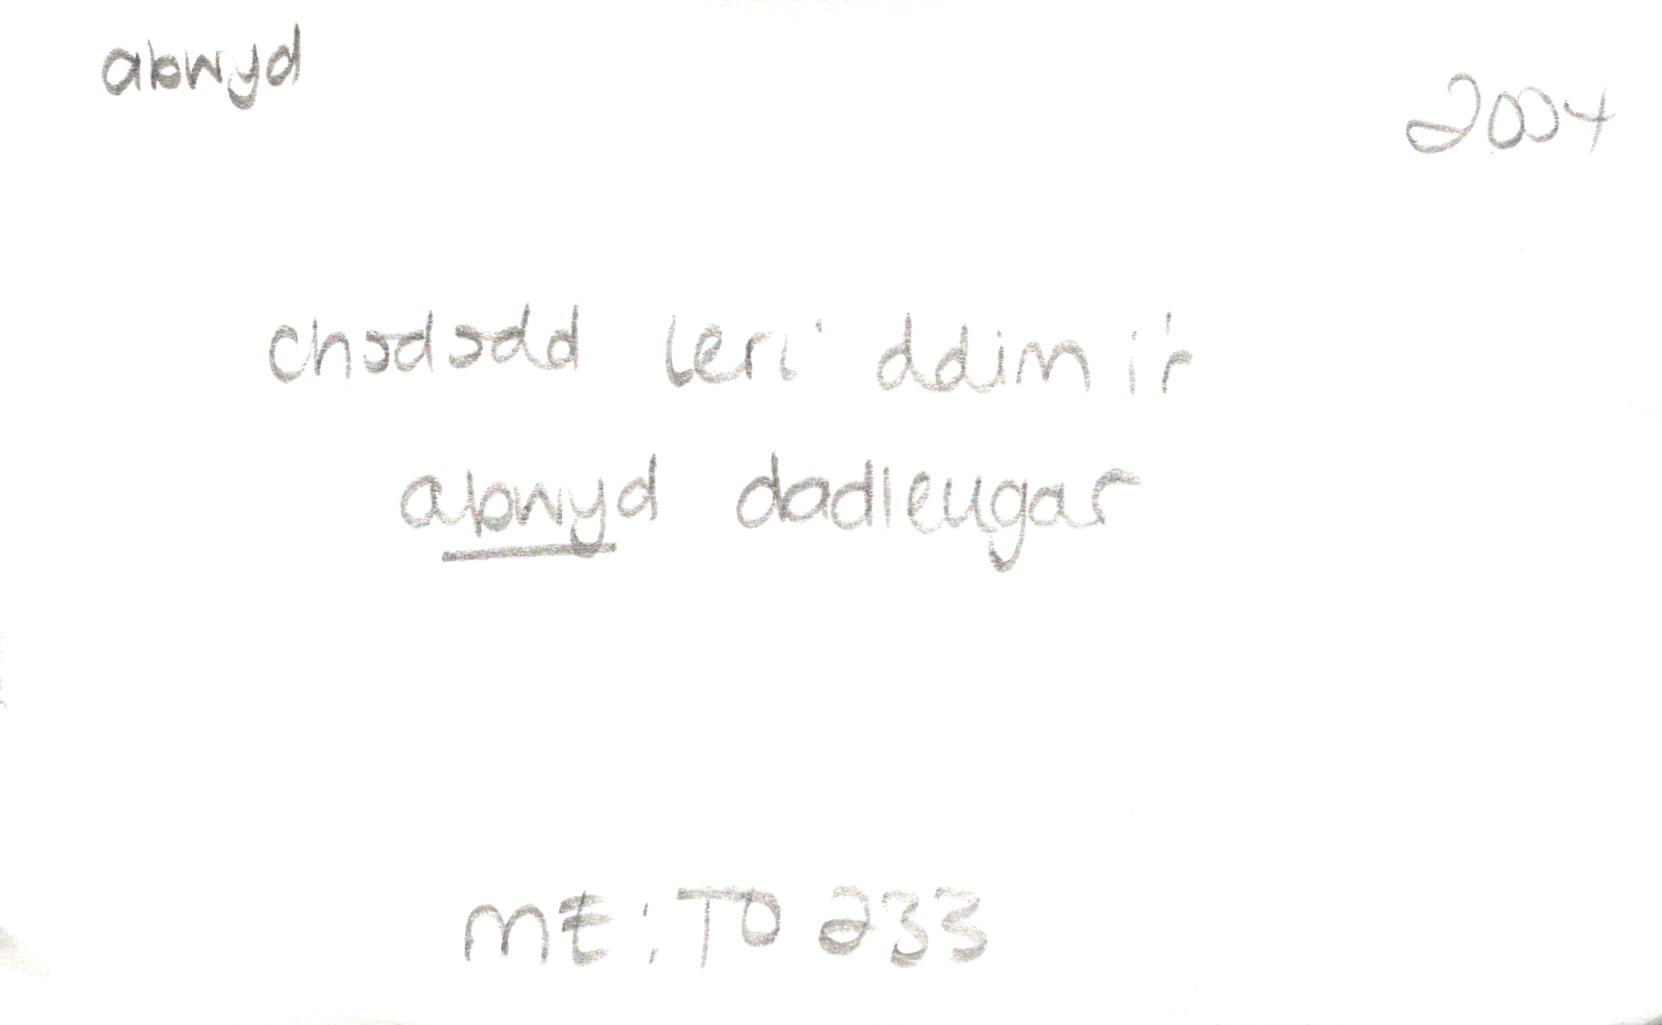 abwyd
2004
Chododd Leri ddim i'r
abwyd dadleugar
ME: TO 233